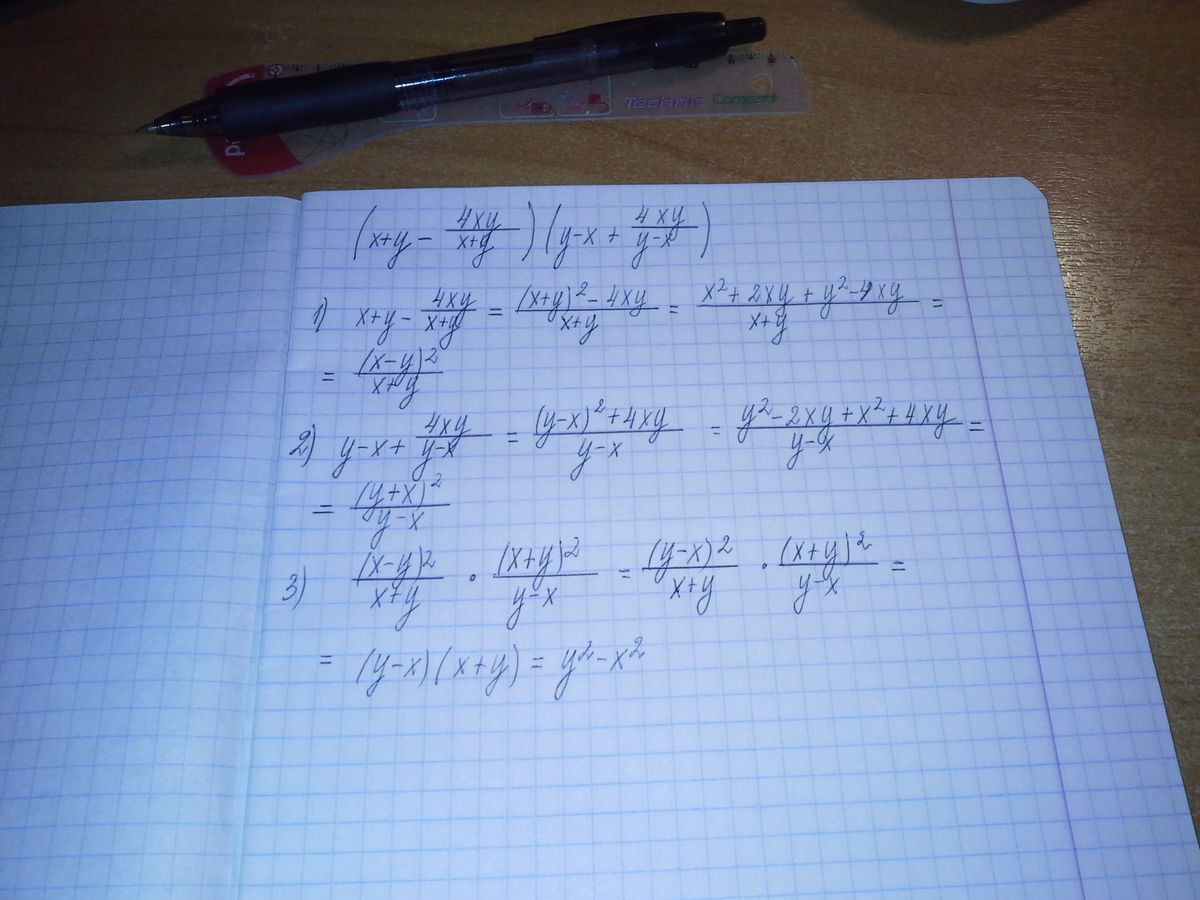 Technic Compact
(x+y - 4xy/(x+y)) (y-x + 4xy/(y-x))
1) x+y - 4xy/(x+y) = ((x+y)² - 4xy)/(x+y) = (x² + 2xy + y² - 4xy)/(x+y) =
= (x-y)²/(x+y)
2) y-x + 4xy/(y-x) = ((y-x)² + 4xy)/(y-x) = (y² - 2xy + x² + 4xy)/(y-x) =
= (y+x)²/(y-x)
3) (x-y)²/(x+y) · (x+y)²/(y-x) = (y-x)²/(x+y) · (x+y)²/(y-x) =
= (y-x)(x+y) = y² - x²